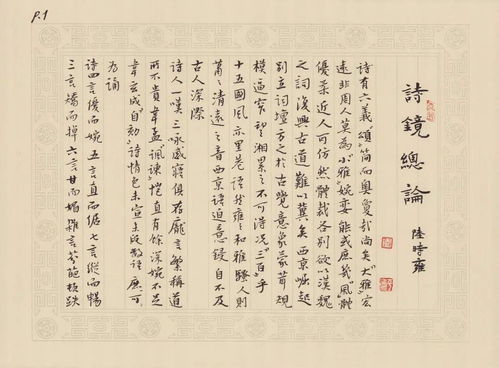 P.1
詩鏡總論 陸時雍
詩有六義"頌"簡而奧夐哉尚矣"大雅"宏
遠非周人莫為"小雅"婉孌能或庶幾"風"體
優柔近人可仿然體裁各別欲以漢魏
之詞復興古道難以冀矣西京崛起
別立詞壇方之於古覺意象蒙茸規
模逼窄望湘累之不可得況"三百"乎
十五國風亦里巷語然雍雍和雅騷人則
蕭蕭清遠之音西京語迫意鏃自不及
古人深際
詩人一嘆三詠感寤俱存龐言繁稱道
所不貴韋孟"諷諫"愷直有餘深婉不足
韋玄成"自劾"詩情色未宣末段數語庶可
為誦
詩四言優而婉五言直而倨七言縱而暢
三言矯而掉六言甘而媚雜言芬葩頓跌